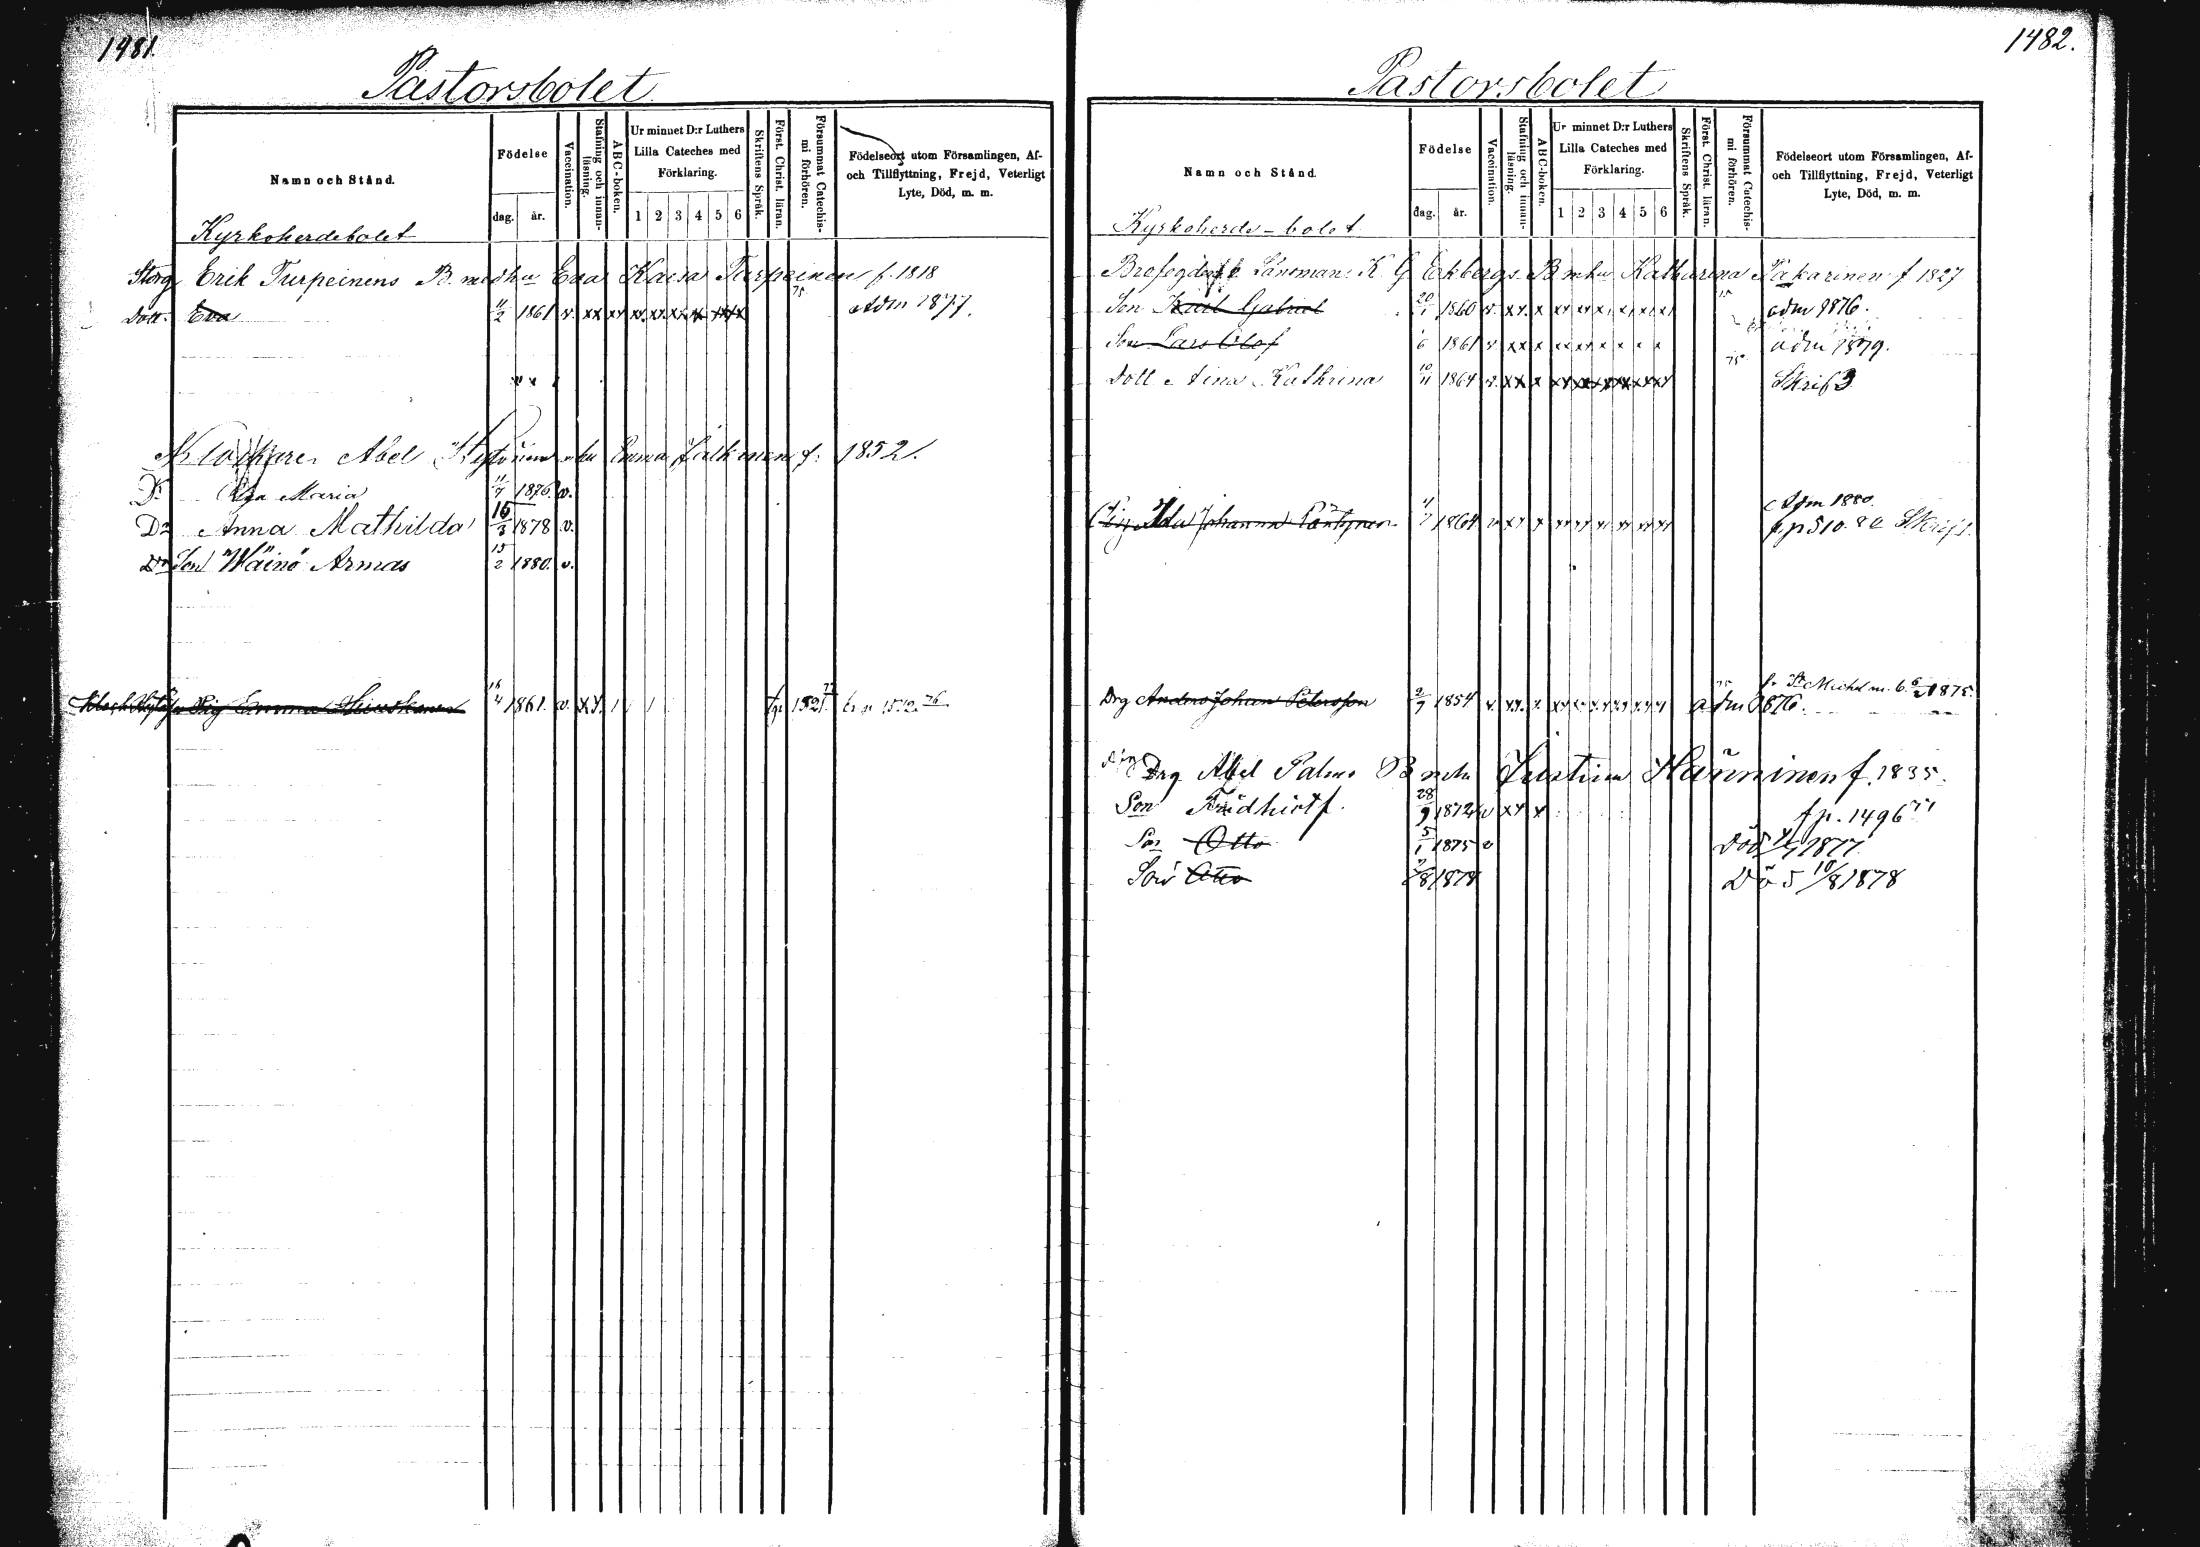 1481.
Pastorsbolet
Namn och Stånd.
Födelse
dag. år.
Vaccination.
Stafning och innanläsning.
ABC-boken.
Ur minnet D:r Luthers Lilla Cateches med Förklaring.
1 2 3 4 5 6
Skriftens Språk.
Först. Christ. läran.
Försummat Catechismi förhören.
Födelseort utom Församlingen, Af- och Tillflyttning, Frejd, Veterligt Lyte, Död, m. m.
Kyrkoherdebolet
Erik Turpeinens B. med hu Eva Kaisa Turpeinen f. 1818
Dott. Eva 11/2 1861 v. xx xx xx xx xx xx xx xx 75 Adm 1877.
Klockaren Abel mhu Emma f. 1852.
Dr Maria 11/7 1876. v.
Dr Anna Mathilda 16/3 1878 v.
Dr Son Wäinö Armas 15/2 1880. v.
Pig Emma 16/4 1861. v. xx
1482.
Pastorsbolet
Namn och Stånd.
Födelse
dag. år.
Vaccination.
Stafning och innanläsning.
ABC-boken.
Ur minnet D:r Luthers Lilla Cateches med Förklaring.
1 2 3 4 5 6
Skriftens Språk.
Först. Christ. läran.
Försummat Catechismi förhören.
Födelseort utom Församlingen, Af- och Tillflyttning, Frejd, Veterligt Lyte, Död, m. m.
Kyrkoherde-bolet.
Länsman K. G. Ekbergs B mhu Katharina Pakarinen f 1827
Son Karl Gabriel 20/1 1860 v. xx. x xx xx x x x x 75 adm 1876.
Son Lars Olof 1861 v xx x xx xx x x x x adm 1879.
Dott Aina Kathrina 10/11 1864 v. xx x xx xx xx xx xx xx 75 Skrift
Pig Ida Johanna 1864 v xx x xx xx xx xx xx xx Adm 1880. f. p 510. 80 Skrift.
Drg Anders Johan Petersson 2/7 1854 v. xx. x 75 adm 1876. fr St Michel m. b. 1875.
Drg Abel Palm B mhu Justina Hänninen f. 1835.
Son Fridhiof. 28/9 1872 v xx x f p. 1496 77
Son Otto 5/1 1875 v Död 1877
Son Otto 1878 Död 10/8 1878